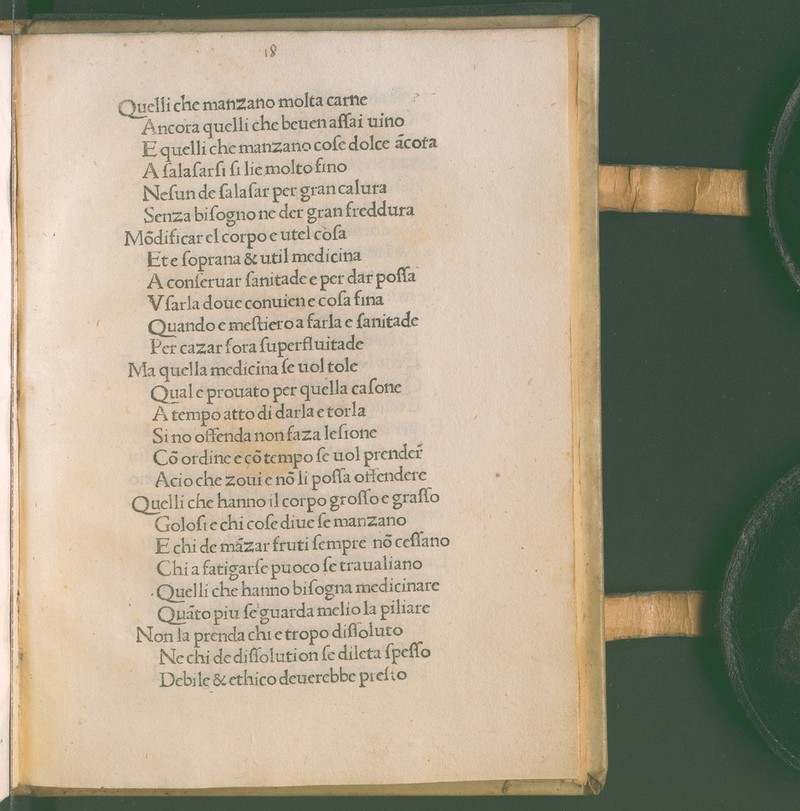 18
Quelli che manzano molta carne
Ancora quelli che beuen aſſai uino
E quelli che manzano coſe dolce ācora
A ſalaſarſi ſi lie molto fino
Neſun de ſalaſar per gran calura
Senza biſogno ne der gran freddura
Mōdificar el corpo e utel coſa
Et e ſoprana & util medicina
A conſeruar ſanitade e per dar poſſa
Vſarla doue conuien e coſa fina
Quando e meſtiero a farla e ſanitade
Per cazar fora ſuperfluitade
Ma quella medicina ſe uol tole
Qual e prouato per quella caſone
A tempo atto di darla e torla
Si no offenda non faza leſione
Cō ordine e cō tempo ſe uol prender
Acio che zoui e nō li poſſa offendere
Quelli che hanno il corpo groſſo e graſſo
Goloſi e chi coſe diue ſe manzano
E chi de māzar fruti ſempre nō ceſſano
Chi a fatigarſe puoco ſe traualiano
Quelli che hanno biſogna medicinare
Quāto piu ſe guarda melio la piliare
Non la prenda chi e tropo diſſoluto
Ne chi de diſſolution ſe dileta ſpeſſo
Debile & ethico deuerebbe preſto